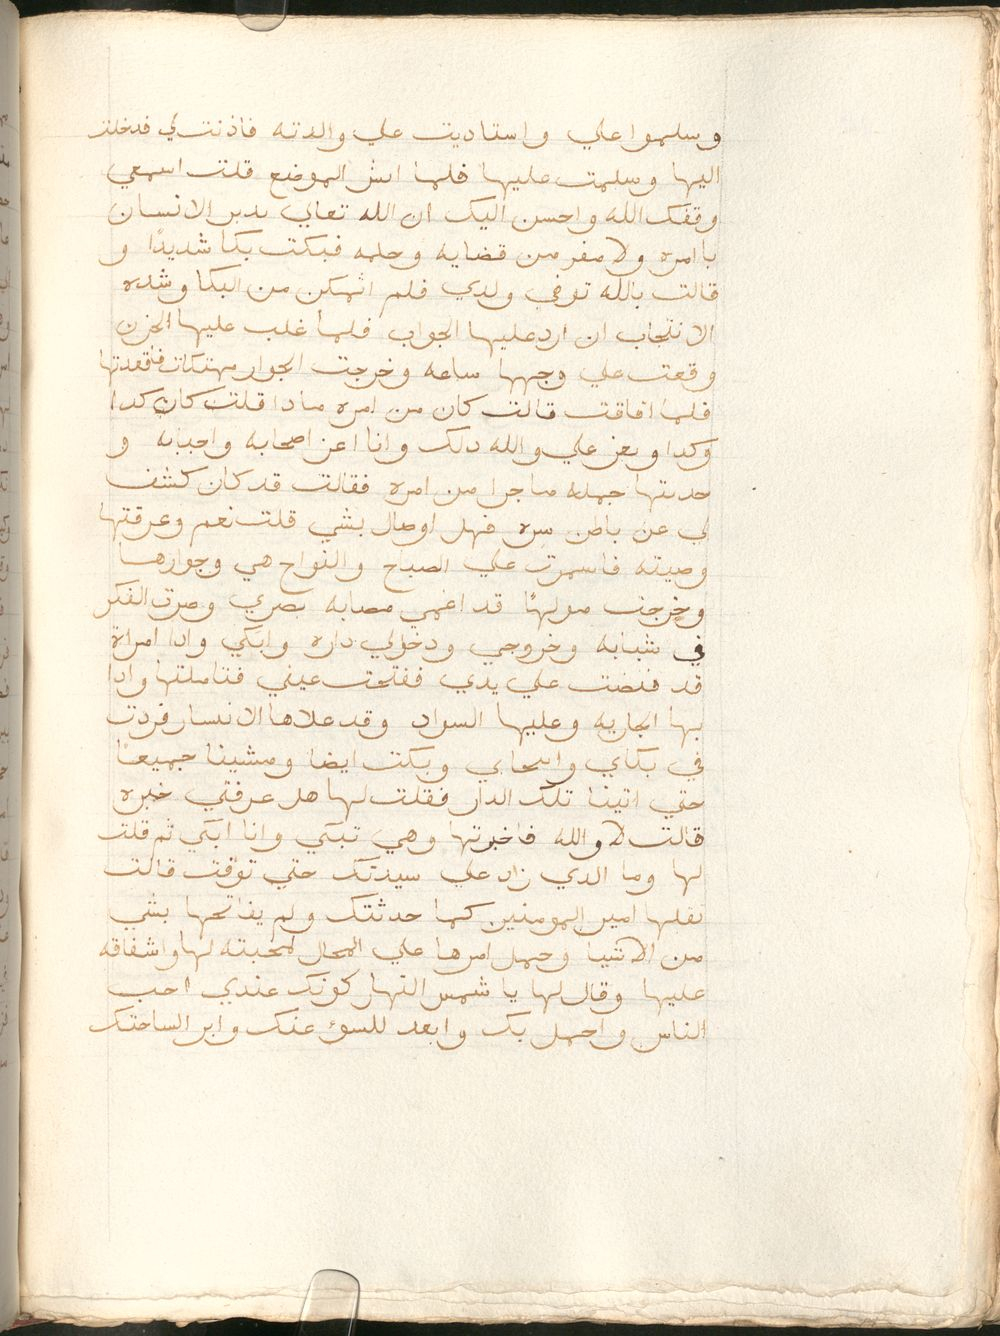 وسلموا علي واستاديت علي والدته فاذنت لي فدخلت
اليها وسلمت عليها فلما الموضع قلت اسمعي
وقفك الله واحسن اليك ان الله تعالي يدبر الانسان
بامره ولا مفر من قضايه وحلمه فبكت بكا شديدًا و
قالت بالله توفي ولدي فلم اتمكن من البكا وشده
الانتحاب ان ارد عليها الجواب فلما غلب عليها الحزن
وقعت علي وجهها ساعه وخرجت الجوار مهتكات فاقعدتها
فلما افاقت قالت كان من امره مادا قلت كان كدا
وكدا ويعز علي والله دلك وانا اعز اصحابه واحبابه و
حدثتها جمله ماجرا من امره فقالت قد كان كشف
لي عن باطن سره فهل اوصال بشي قلت نعم وعرفتها
وصيته فاسمرت علي الصباح والنواح هي وجوارها
وخرجت مولهًا قد اغمي مصابه بصري وصرت الفكر
في شبابه وخروجي ودخولي داره وابكي وادا امراة
قد قبضت علي يدي ففتحت عيني فتاملتها وادا
بها الجاريه وعليها السواد وقد علاها الانكسار فزدت
في بكاي وانتحابي وبكت ايضا ومشينا جميعًا
حتي اتينا تلك الدار فقلت لها هل عرفتي خبره
قالت لا والله فاخبرتها وهي تبكي وانا ابكي ثم قلت
لها وما الدي زاد علي سيدتك حتي توفت قالت
نقلها امير المومنين كما حدثتك ولم يفاتحها بشي
من الاشيا وحمل امرها علي المحال لمحبته لها واشفاقه
عليها وقال لها يا شمس النهار كونك عندي احب
الناس واحمل بك وابعد للسوء عنك وابر الساحتك